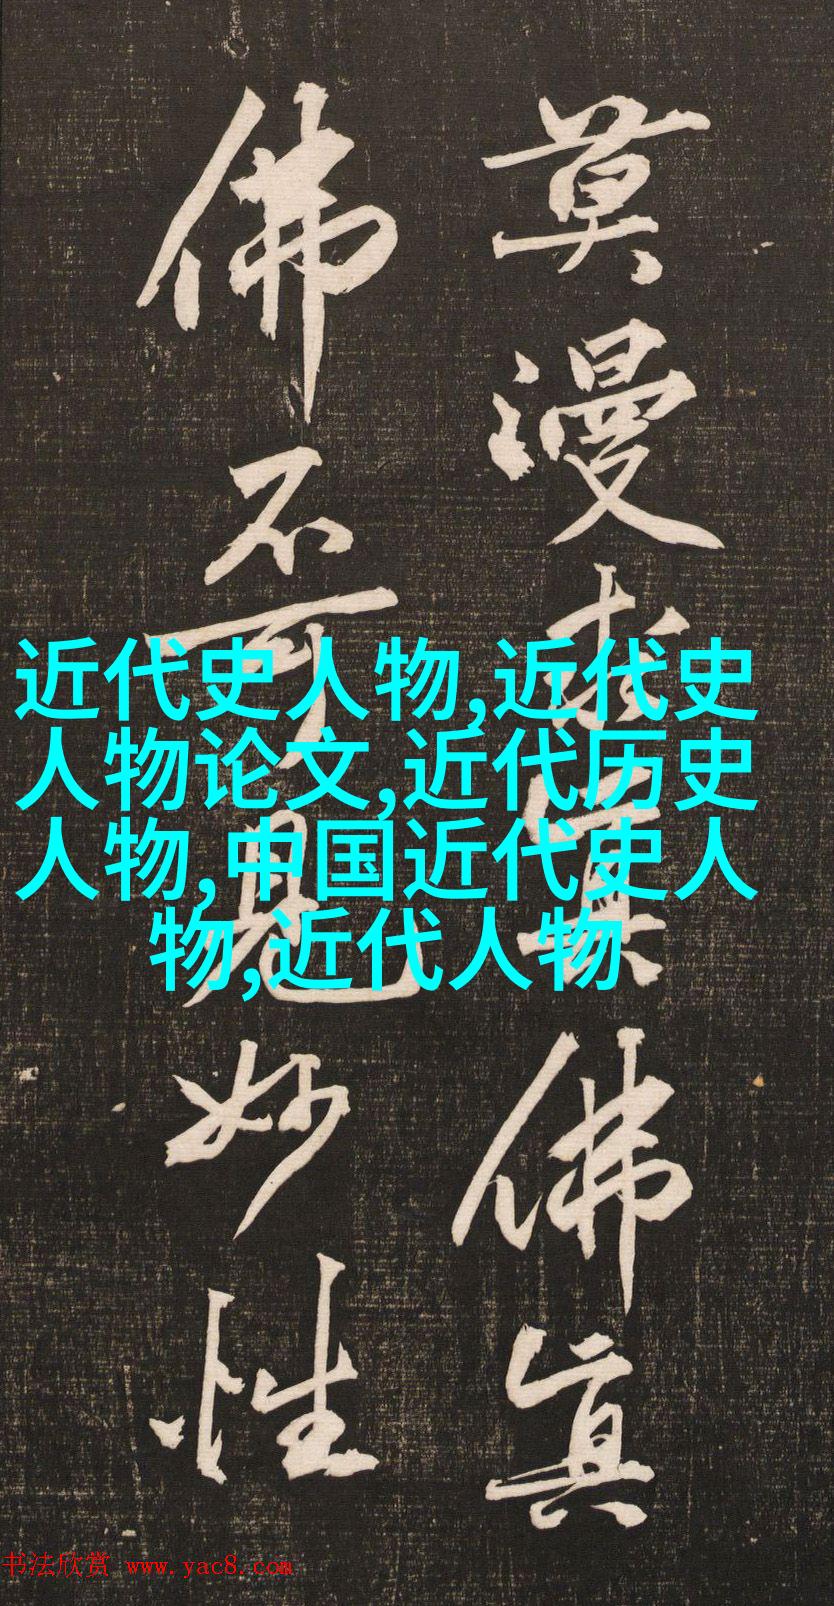 莫漫求真佛真
佛不可見妙性
近代史人物,近代史
人物论文,近代历史
人物,中国近代史人
物,近代人物
书法欣赏 www.yac8.com